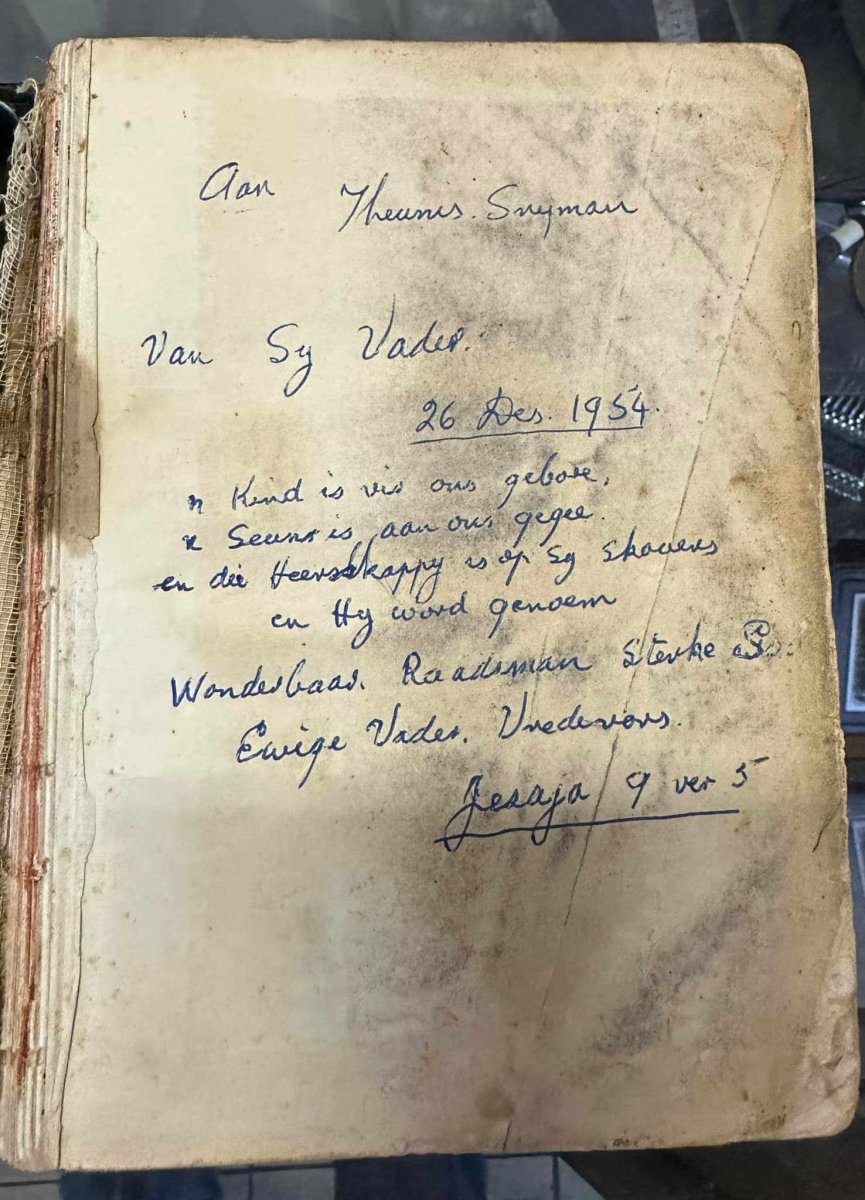 Aan Theunis. Snyman
Van Sy Vader.
26 Des. 1954.
n Kind is vir ons gebore,
n Seun is aan ons gegee.
en die Heerskappy is op Sy Skouers
en Hy word genoem
Wonderbaar. Raadsman Sterke
Ewige Vader. Vredevors.
Jesaja 9 ver 5